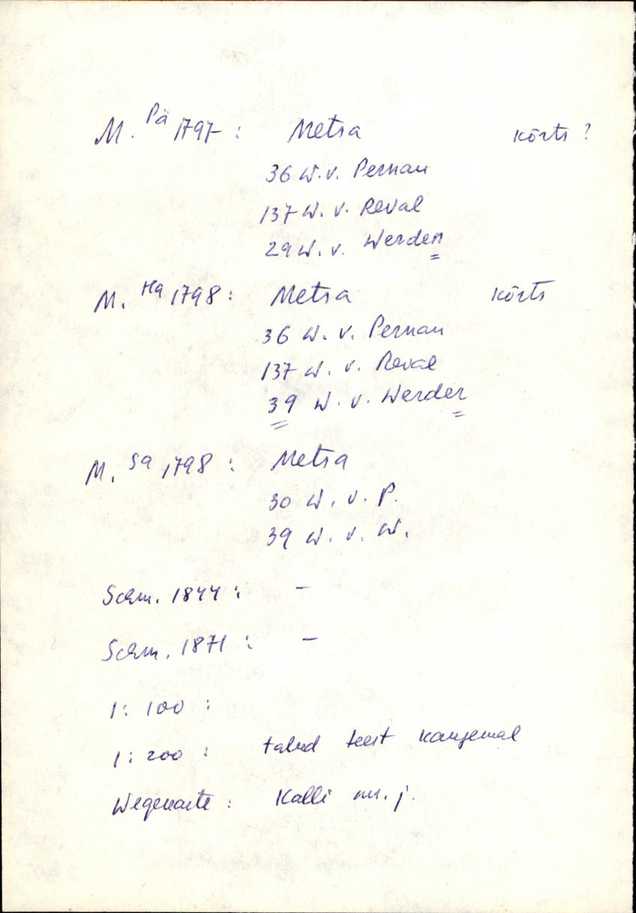 M. Pä 1797: Metsa kõrts?
36 W. v. Pernau
137 W. v. Reval
29 W. v. Werden
M. Ha 1798: Metsa kõrts
36 W. v. Pernau
137 W. v. Reval
39 W. v. Werder
M. Sa 1798: Metsa
30 W. v. P.
39 W. v. W.
Schm. 1844: -
Schm. 1871: -
1:100:
1:200: talud teest kaugemal
Wegekarte: Kalli